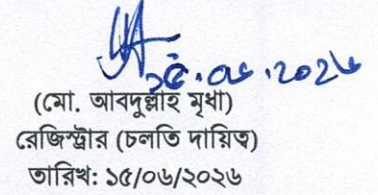 ১৫.০৬.২০২৬
(মো. আবদুল্লাহ মৃধা)
রেজিস্ট্রার (চলতি দায়িত্ব)
তারিখ: ১৫/০৬/২০২৬